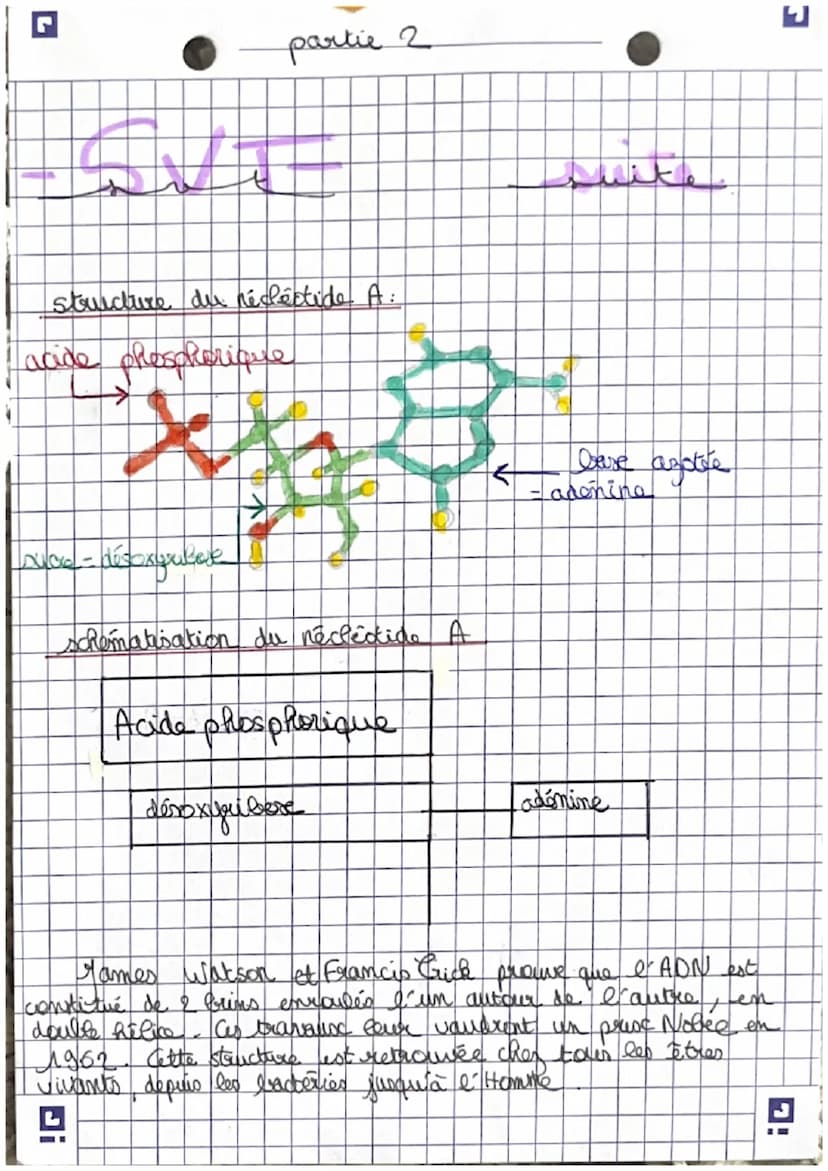 partie 2
- SVT suite
structure du nécléotide A :
acide phosphorique
base azotée
= adénine
sucre = désoxyribose
schématisation du nécléotide A
Acide phosphorique
désoxyribose
adénine
James Watson et Francis Crick prouve que l'ADN est
constitué de 2 brins enroulés l'un autour de l'autre, en
double hélice. Ces travaux leur vaudront un prix Nobel en
1962. Cette structure est retrouvée chez tous les Êtres
vivants, depuis les bactéries jusqu'à l'Homme.